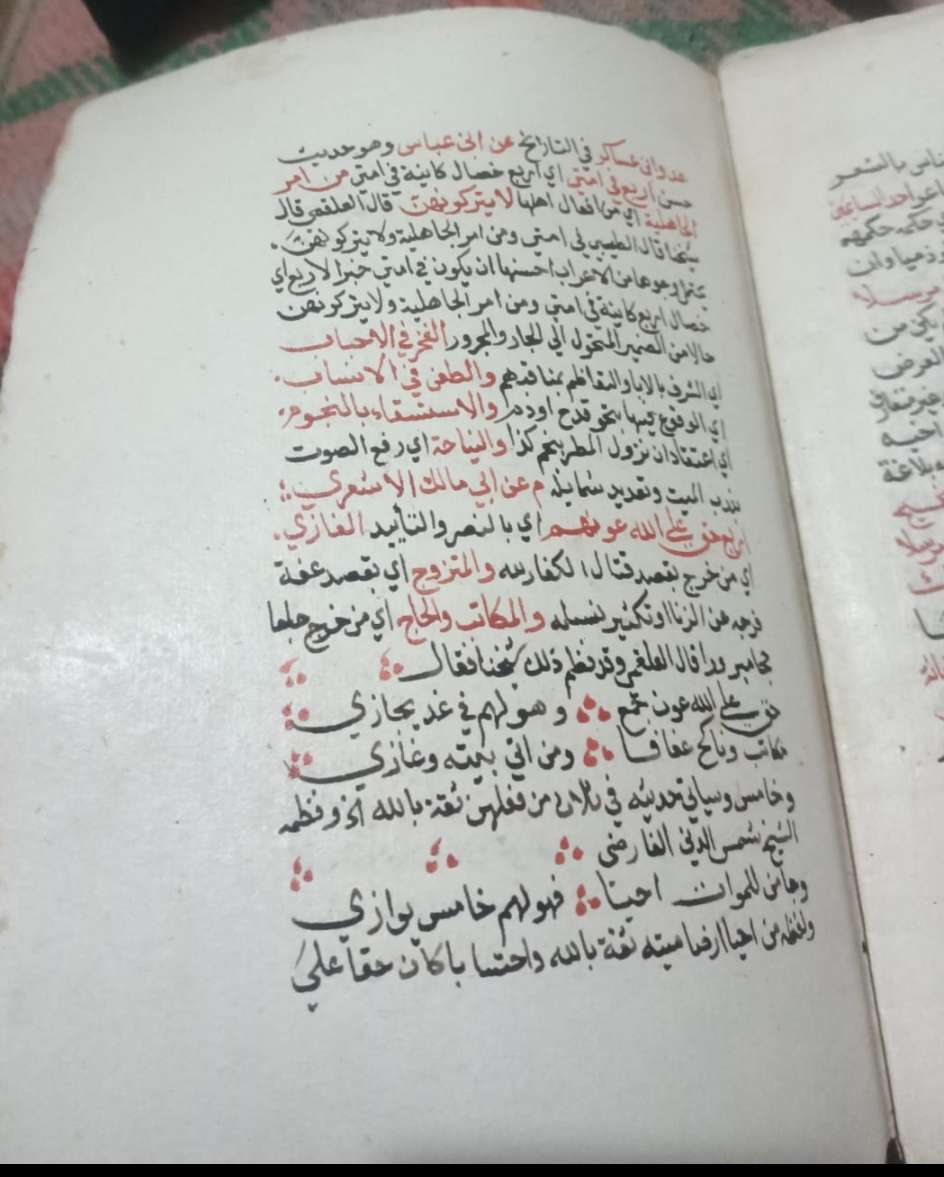 عد وابن عساكر في التاريخ عن ابن عباس وهو حديث
حسن اربع في امتي اي اربع خصال كاينة في امتي من امر
الجاهلية اي من افعال اهلها لا يتركونهن قال العلقمي قال
شيخنا قال الطيبي في امتي ومن امر الجاهلية ولا يتركونهن
من الاعراب احسنها ان يكون في امتي خبرا لاربع اي
خصال اربع كاينة في امتي ومن امر الجاهلية ولا يتركونهن
حالا من الضمير المتحول الي الجار والمجرور الفخر في الاحساب
اي الشرف بالابا والتعاظم بمناقبهم والطعن في الانساب
اي الوقوع فيها بنحو قدح او ذم والاستسقاء بالنجوم
اي اعتقاد ان نزول المطر بنجم كذا والنياحة اي رفع الصوت
بندب الميت وتعديد شمايله م عن ابي مالك الاشعري
اربع حق علي الله عونهم اي بالنصر والتأييد الغازي
اي من خرج بقصد قتال الكفار لله والمتزوج اي بقصد عفة
فرجه عن الزنا او تكثير نسله والمكاتب والحاج اي من خرج حاجا
حجا مبرورا قال العلقمي وقد نظم ذلك شيخنا فقال
حق علي الله عون جمع وهو لهم في غد يجازي
مكاتب وناكح عفافا ومن اتي بيته وغازي
وخامس وسياتي حديثه في ثلاث من فعلهن ثقة بالله اخ ونظمه
الشيخ شمس الدين الفارضي
وجا من للموات احيا فهو لهم خامس يوازي
ولفظه من احيا ارضا ميتة ثقة بالله واحتسابا كان حقا علي
ناس بالشعر
حكمهم
مرسلا
العرض
اخيه
بلاغة